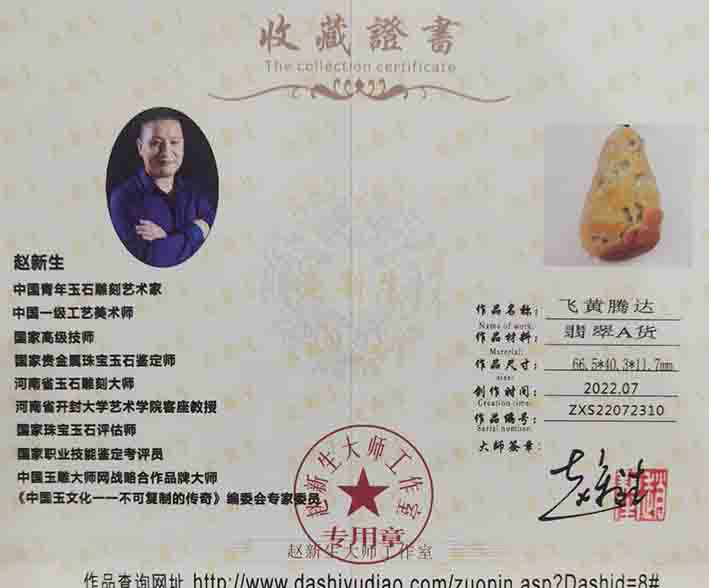 收藏證書
The collection certificate
赵新生
中国青年玉石雕刻艺术家
中国一级工艺美术师
国家高级技师
国家贵金属珠宝玉石鉴定师
河南省玉石雕刻大师
河南省开封大学艺术学院客座教授
国家珠宝玉石评估师
国家职业技能鉴定考评员
中国玉雕大师网战略合作品牌大师
《中国玉文化一一不可复制的传奇》编委会专家委员
作品名称: 飞黄腾达
Name of work:
作品材料: 翡翠A货
Material:
作品尺寸: 66.5*40.3*11.7mm
size:
创作时间: 2022.07
Creation time:
作品编号: ZXS22072310
Serial number:
大师签章:
赵新生大师工作室
专用章
赵新生大师工作室
作品查询网址 http://www.dashiyudiao.com/zuopin.asp?Dashid=8#